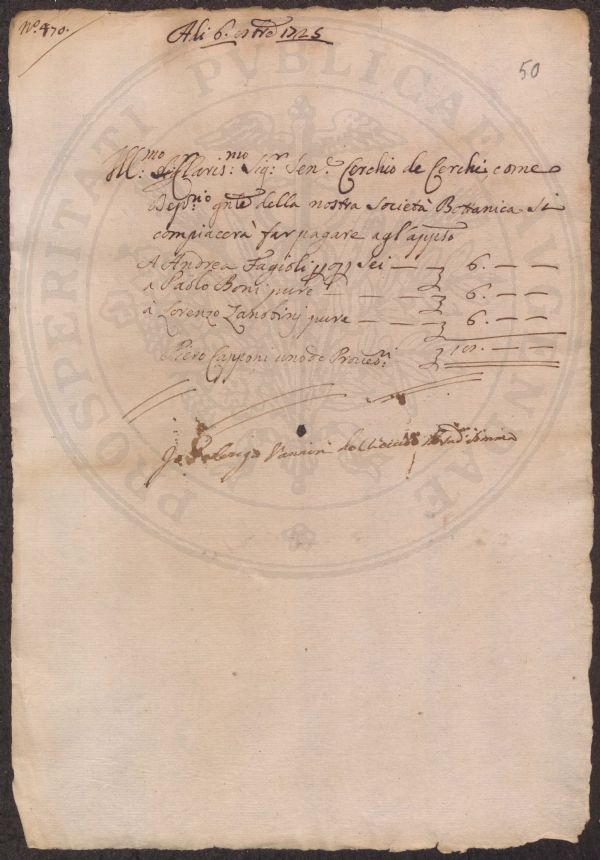 Nº. 870.
A li 6. 1725
50
Ill.mo Claris.mo Sig.r Sen.e Cerchio de Cerchi come
Dep.rio gnte della nostra Società Bottanica si
compiacerà far pagare agl'appto
A Andrea Fagioli sei — — 6. — —
a Paolo Boni pure — — — 6. — —
à Lorenzo Zanobini pure — — — 6. — —
Piero Capponi uno de Proved.i
Vannini
PROSPERITATI PVBLICAE AVGENDAE